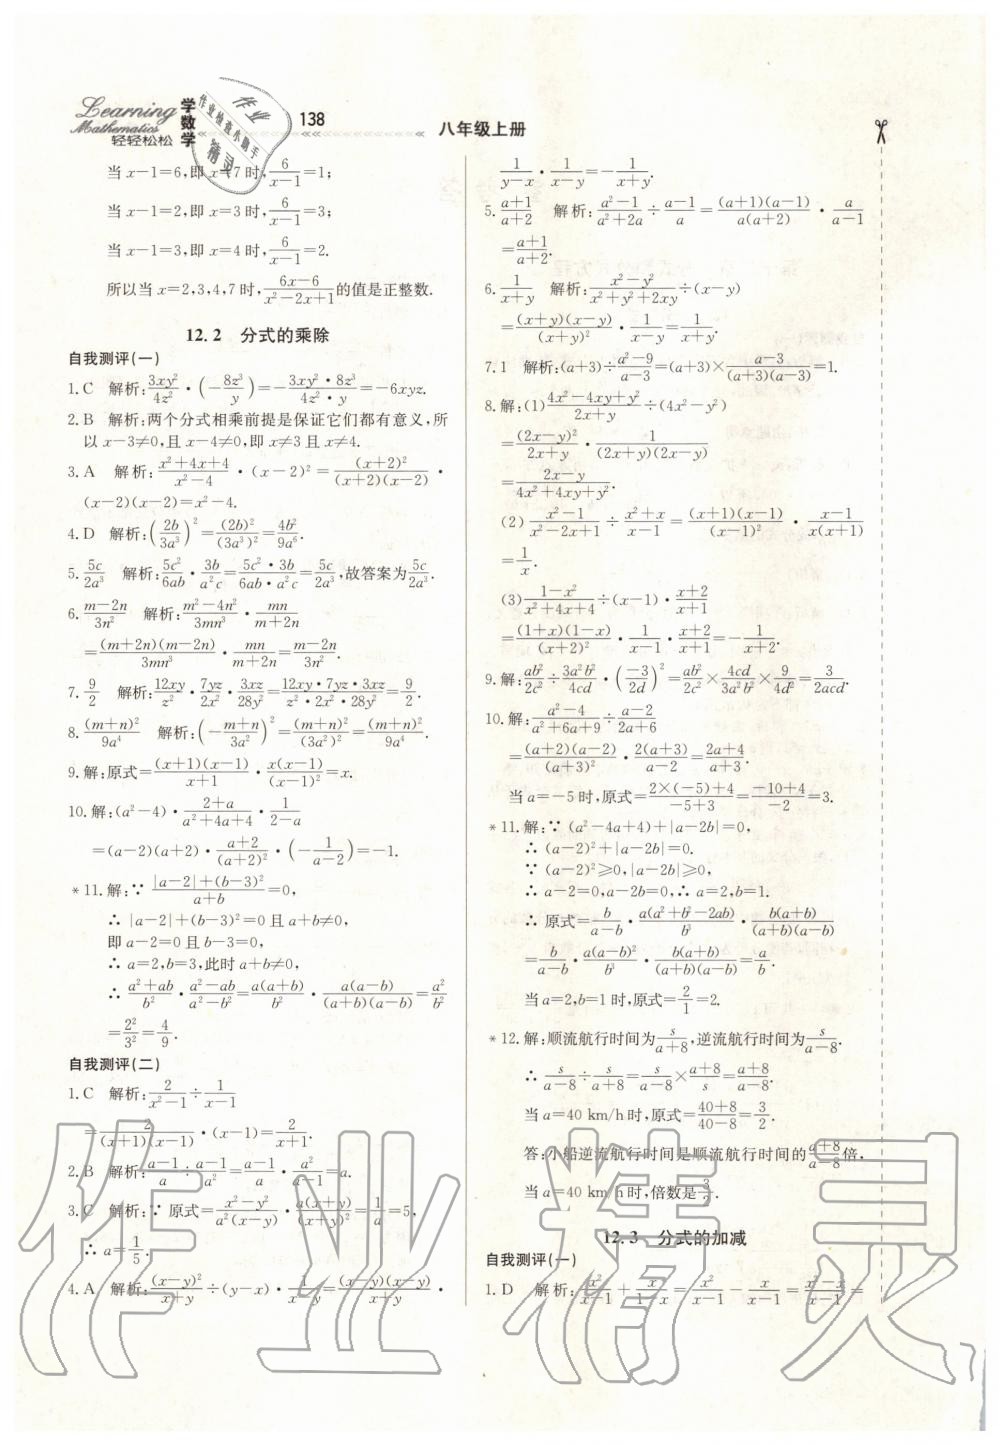 Learning
Mathematics
轻轻松松
学数学
138
八年级上册
当 x−1=6,即 x=7 时,6/(x−1)=1;
当 x−1=2,即 x=3 时,6/(x−1)=3;
当 x−1=3,即 x=4 时,6/(x−1)=2.
所以当 x=2,3,4,7 时,(6x−6)/(x²−2x+1)的值是正整数.
12.2 分式的乘除
自我测评(一)
1.C 解析:3xy²/4z²·(−8z³/y)=−(3xy²·8z³)/(4z²·y)=−6xyz.
2.B 解析:两个分式相乘前提是保证它们都有意义,所
以 x−3≠0,且 x−4≠0,即 x≠3 且 x≠4.
3.A 解析:(x²+4x+4)/(x²−4)·(x−2)²=(x+2)²/((x+2)(x−2))·
(x−2)(x−2)=x²−4.
4.D 解析:(2b/3a³)²=(2b)²/(3a³)²=4b²/9a⁶.
5.5c/2a³ 解析:5c²/6ab·3b/a²c=(5c²·3b)/(6ab·a²c)=5c/2a³,故答案为5c/2a³.
6.(m−2n)/3n² 解析:(m²−4n²)/3mn³·mn/(m+2n)
=((m+2n)(m−2n))/3mn³·mn/(m+2n)=(m−2n)/3n².
7.9/2 解析:12xy/z²·7yz/2x²·3xz/28y²=(12xy·7yz·3xz)/(z²·2x²·28y²)=9/2.
8.(m+n)²/9a⁴ 解析:(−(m+n)/3a²)²=(m+n)²/(3a²)²=(m+n)²/9a⁴.
9.解:原式=((x+1)(x−1))/(x+1)·x(x−1)/(x−1)²=x.
10.解:(a²−4)·(2+a)/(a²+4a+4)·1/(2−a)
=(a−2)(a+2)·(a+2)/(a+2)²·(−1/(a−2))=−1.
*11.解:∵(|a−2|+(b−3)²)/(a+b)=0,
∴|a−2|+(b−3)²=0 且 a+b≠0,
即 a−2=0 且 b−3=0,
∴a=2,b=3,此时 a+b≠0,
∴(a²+ab)/b²·(a²−ab)/(a²−b²)=a(a+b)/b²·a(a−b)/((a+b)(a−b))=a²/b²
=2²/3²=4/9.
自我测评(二)
1.C 解析:2/(x²−1)÷1/(x−1)
=2/((x+1)(x−1))·(x−1)=2/(x+1).
2.B 解析:(a−1)/a÷(a−1)/a²=(a−1)/a·a²/(a−1)=a.
3.C 解析:∵原式=(x²−y²)/(a²(x−y))·a(x+y)/(x+y)²=1/a=5,
∴a=1/5.
4.A 解析:(x−y)²/(x+y)÷(y−x)·1/(x−y)=((x−y)(x−y))/(x+y)·
1/(y−x)·1/(x−y)=−1/(x+y).
5.(a+1)/(a+2) 解析:(a²−1)/(a²+2a)÷(a−1)/a=((a+1)(a−1))/(a(a+2))·a/(a−1)
=(a+1)/(a+2).
6.1/(x+y) 解析:(x²−y²)/(x²+y²+2xy)÷(x−y)
=((x+y)(x−y))/(x+y)²·1/(x−y)=1/(x+y).
7.1 解析:(a+3)÷(a²−9)/(a−3)=(a+3)×(a−3)/((a+3)(a−3))=1.
8.解:(1)(4x²−4xy+y²)/(2x+y)÷(4x²−y²)
=(2x−y)²/(2x+y)·1/((2x+y)(2x−y))
=(2x−y)/(4x²+4xy+y²).
(2)(x²−1)/(x²−2x+1)÷(x²+x)/(x−1)=((x+1)(x−1))/(x−1)²·(x−1)/(x(x+1))
=1/x.
(3)(1−x²)/(x²+4x+4)÷(x−1)·(x+2)/(x+1)
=((1+x)(1−x))/(x+2)²·1/(x−1)·(x+2)/(x+1)=−1/(x+2).
9.解:ab²/2c²÷3a²b²/4cd·(−3/2d)²=ab²/2c²×4cd/3a²b²×9/4d²=3/2acd.
10.解:(a²−4)/(a²+6a+9)÷(a−2)/(2a+6)
=((a+2)(a−2))/(a+3)²·2(a+3)/(a−2)=(2a+4)/(a+3).
当 a=−5 时,原式=(2×(−5)+4)/(−5+3)=(−10+4)/(−2)=3.
*11.解:∵(a²−4a+4)+|a−2b|=0,
∴(a−2)²+|a−2b|=0.
∵(a−2)²≥0,|a−2b|≥0,
∴a−2=0,a−2b=0,∴a=2,b=1.
∴原式=b/(a−b)·a(a²+b²−2ab)/b³·b(a+b)/((a+b)(a−b))
=b/(a−b)·a(a−b)²/b³·b(a+b)/((a+b)(a−b))=a/b.
当 a=2,b=1 时,原式=2/1=2.
*12.解:顺流航行时间为s/(a+8),逆流航行时间为s/(a−8).
∴s/(a−8)÷s/(a+8)=s/(a−8)×(a+8)/s=(a+8)/(a−8).
当 a=40 km/h 时,原式=(40+8)/(40−8)=3/2.
答:小船逆流航行时间是顺流航行时间的(a+8)/(a−8)倍,
当 a=40 km/h 时,倍数是3/2.
12.3 分式的加减
自我测评(一)
1.D 解析:x²/(x−1)+x/(1−x)=x²/(x−1)−x/(x−1)=(x²−x)/(x−1)=
作业检查小助手
作业精灵
作业精灵